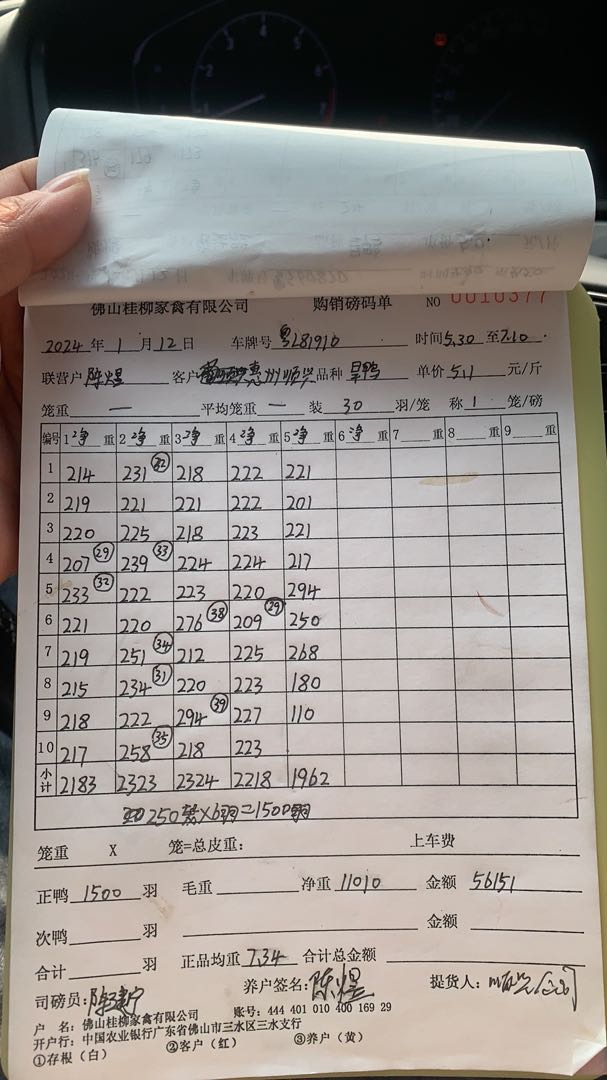 佛山桂柳家禽有限公司 购销磅码单 NO 0010377
2024 年 1 月 12 日 车牌号 粤L81910 时间 5.30 至 7.10
联营户 陈煜 客户 惠州顺兴 品种 旱鸭 单价 5.1 元/斤
笼重 — 平均笼重 — 装 30 羽/笼 称 1 笼/磅
编号 1净重 2净重 3净重 4净重 5净重 6净重 7 重 8 重 9 重
1 214 231 32 218 222 221
2 219 221 221 222 201
3 220 225 218 223 221
4 207 29 239 33 224 224 217
5 233 32 222 223 220 294
6 221 220 276 38 209 29 250
7 219 251 34 212 225 268
8 215 234 31 220 223 180
9 218 222 294 39 227 110
10 217 258 35 218 223
小计 2183 2323 2324 2218 1962
250 ×6羽=1500羽
笼重 X 笼=总皮重: 上车费
正鸭 1500 羽 毛重 净重 11010 金额 56151
次鸭 羽 金额
合计 羽 正品均重 7.34 合计总金额
司磅员: 养户签名: 陈煜 提货人:
户 名: 佛山桂柳家禽有限公司 账号: 444 401 010 400 169 29
开户行: 中国农业银行广东省佛山市三水区三水支行
①存根(白) ②客户(红) ③养户(黄)